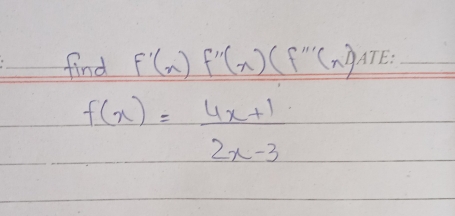 find f'(x) f''(x) (f'''(x) DATE:
f(x) = 4x+1
2x-3